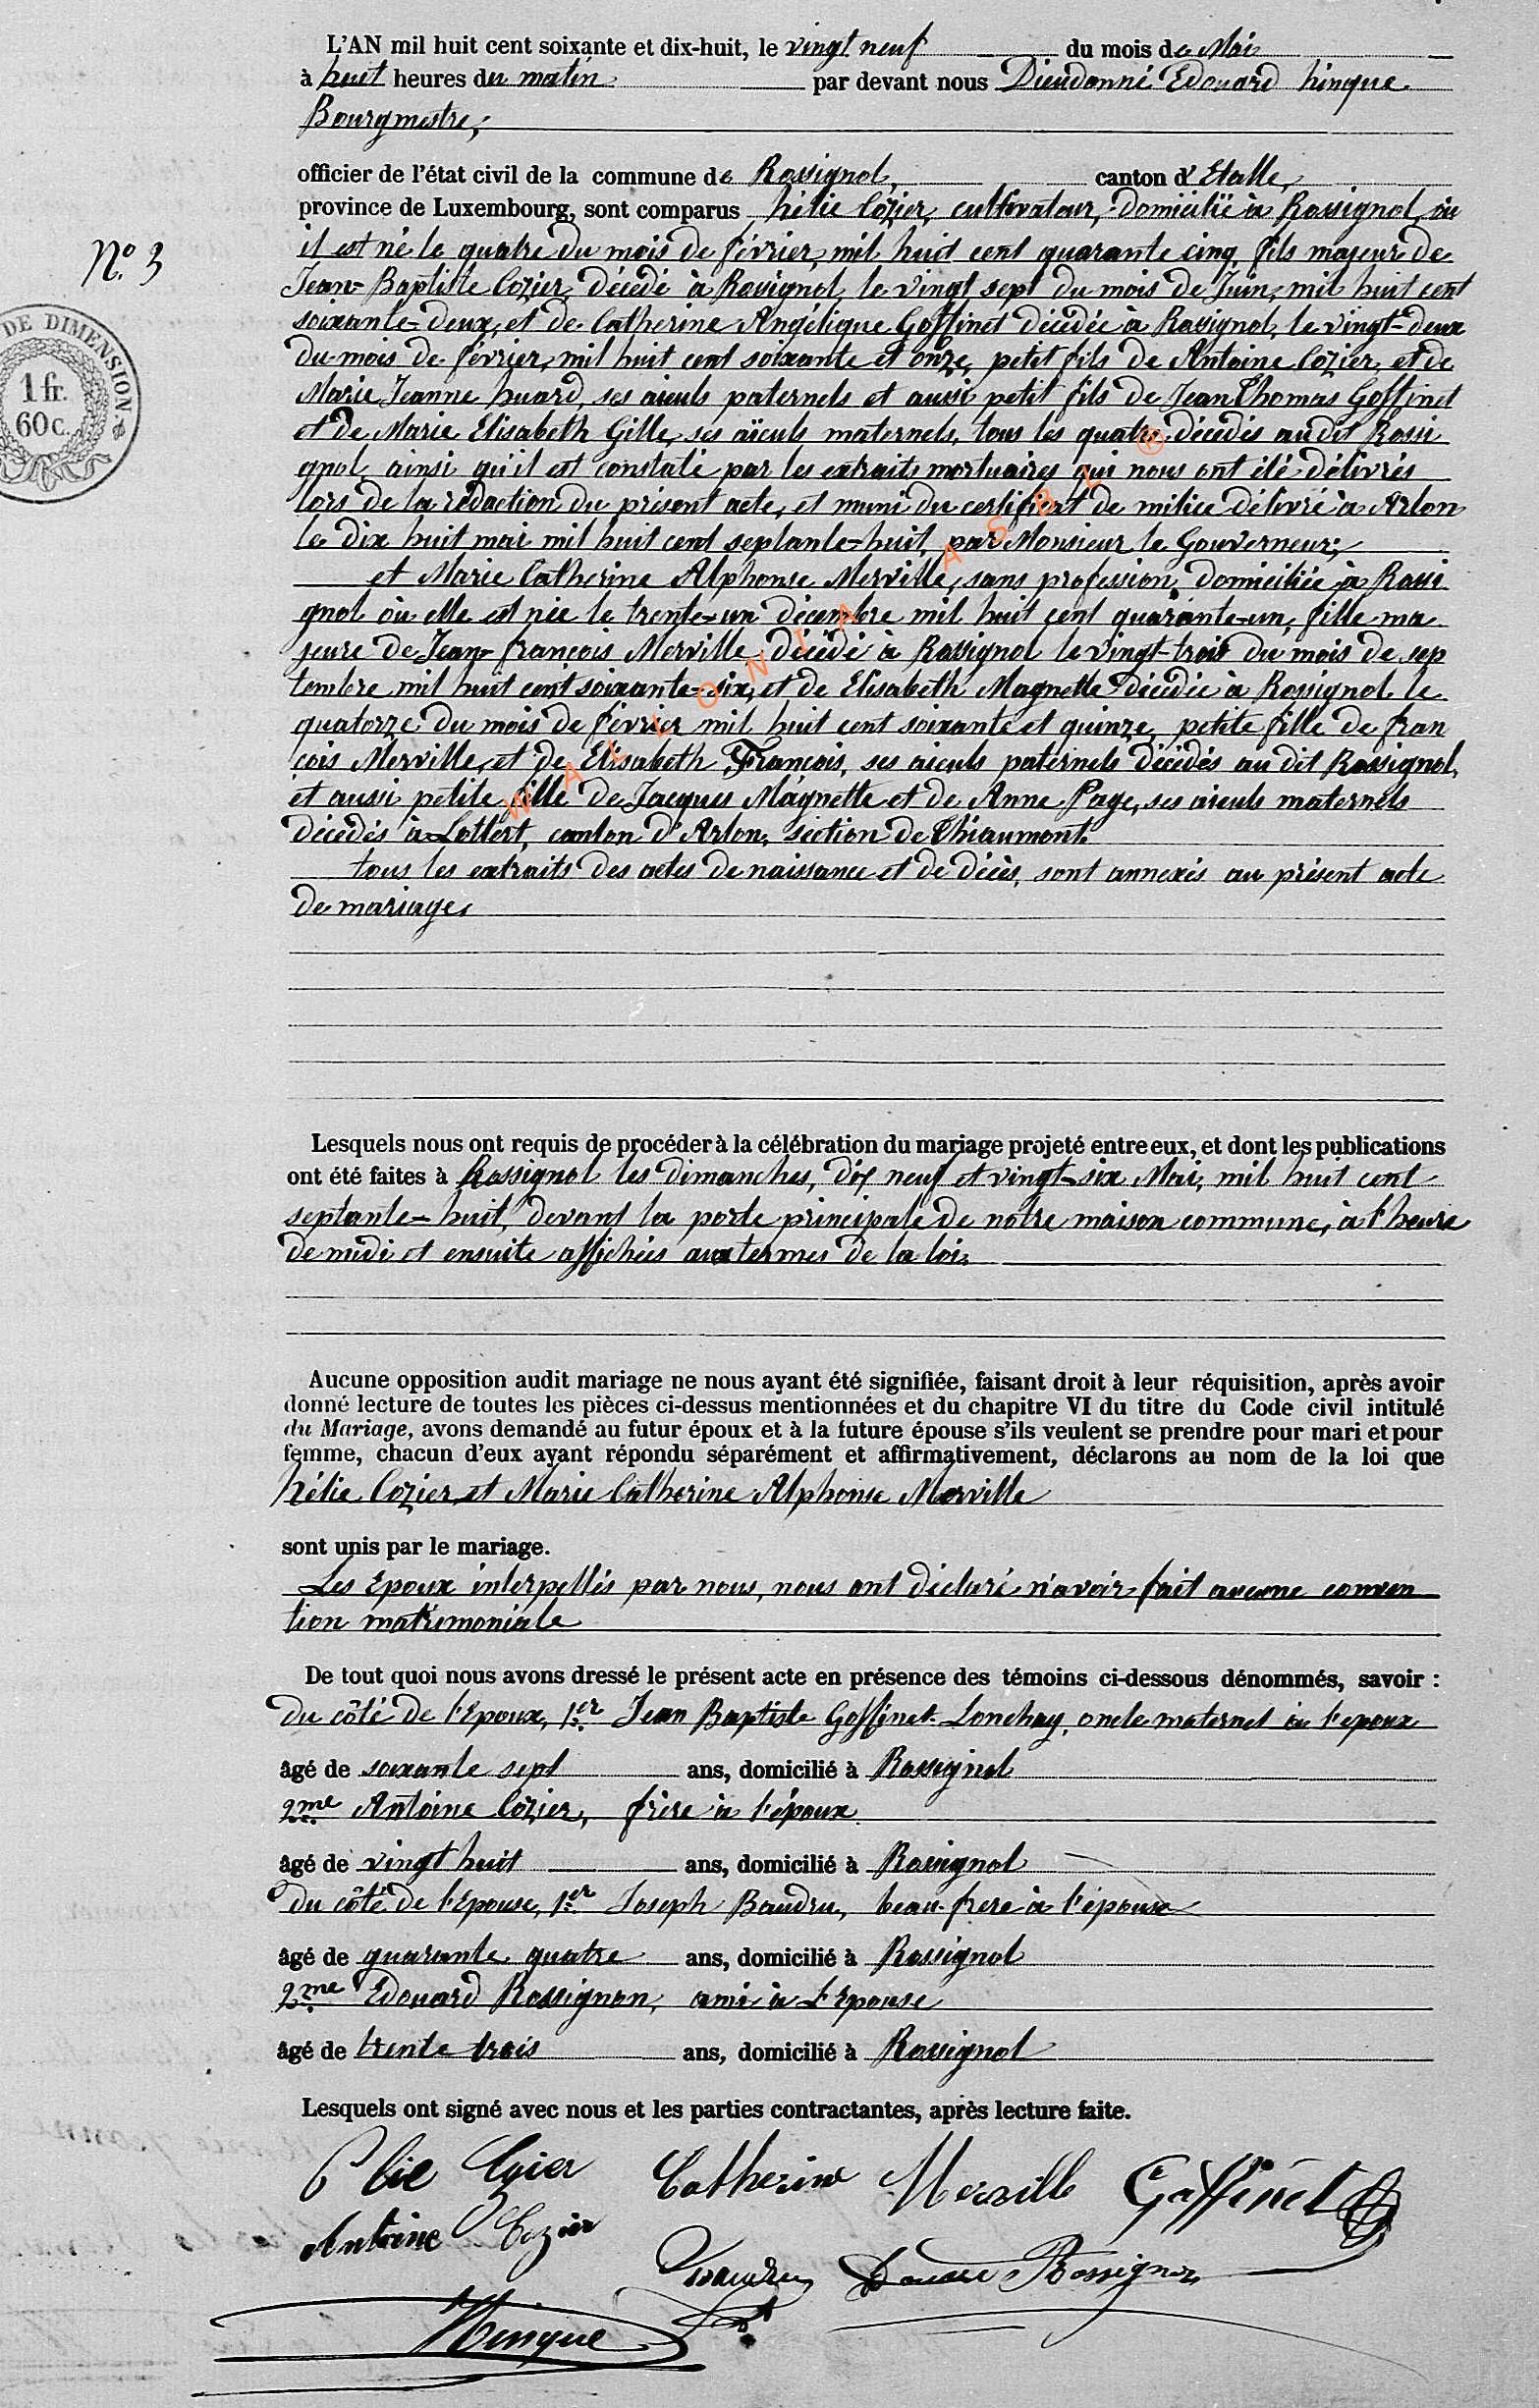 L'AN mil huit cent soixante et dix-huit, le vingt neuf du mois de Mai
à huit heures du matin par devant nous Dieudonné Edouard hinque
Bourgmestre,
officier de l'état civil de la commune de Rossignol, canton d'Etalle,
province de Luxembourg, sont comparus hélie Cozier, cultivateur, domicilié à Rossignol, où
N.o 3
il est né le quatre du mois de février, mil huit cent quarante cinq, fils majeur de
Jean-Baptiste Cozier, décédé à Rossignol, le vingt sept du mois de Juin, mil huit cent
soixante-deux, et de Catherine Angélique Goffinet décédée à Rossignol, le vingt-deux
du mois de février, mil huit cent soixante et onze, petit fils de Antoine Cozier, et de
Marie Jeanne huard, ses aieuls paternels et aussi petit fils de Jean Thomas Goffinet
et de Marie Elisabeth Gille, ses aïeuls maternels, tous les quatre décédés au dit Rossi
gnol, ainsi qu'il est constaté par les extraits mortuaires qui nous ont été délivrés
lors de la rédaction du présent acte, et muni du certificat de milice délivré à Arlon
le dix huit mai mil huit cent septante-huit, par Monsieur le Gouverneur;
et Marie Catherine Alphonse Merville, sans profession, domiciliée à Rossi
gnol où elle est née le trente-un décembre mil huit cent quarante-un, fille ma
jeure de Jean-françois Merville, décédé à Rossignol le vingt-trois du mois de sep
tembre mil huit cent soixante-six, et de Elisabeth Magnette décédée à Rossignol le
quatorze du mois de février mil huit cent soixante et quinze, petite fille de fran
çois Merville, et de Elisabeth François, ses aieuls paternels décédés au dit Rossignol,
et aussi petite fille de Jacques Magnette et de Anne Page, ses aieuls maternels
décédés à Lottert, canton d'Arlon, section de Thiaumont.
tous les extraits des actes de naissance et de décès, sont annexés au présent acte
de mariage.
DE DIMENSION
1 fr.
60 c.
WALLONIA ASBL ®
Lesquels nous ont requis de procéder à la célébration du mariage projeté entre eux, et dont les publications
ont été faites à Rossignol les dimanches, dix neuf et vingt-six Mai, mil huit cent
septante-huit, devant la porte principale de notre maison commune, à l'heure
de midi et ensuite affichées aux termes de la loi.
Aucune opposition audit mariage ne nous ayant été signifiée, faisant droit à leur réquisition, après avoir
donné lecture de toutes les pièces ci-dessus mentionnées et du chapitre VI du titre du Code civil intitulé
du Mariage, avons demandé au futur époux et à la future épouse s'ils veulent se prendre pour mari et pour
femme, chacun d'eux ayant répondu séparément et affirmativement, déclarons au nom de la loi que
hélie Cozier, et Marie Catherine Alphonse Merville
sont unis par le mariage.
Les Epoux interpellés par nous, nous ont déclaré n'avoir fait aucune conven
tion matrimoniale
De tout quoi nous avons dressé le présent acte en présence des témoins ci-dessous dénommés, savoir :
du côté de l'Epoux, 1er Jean Baptiste Goffinet-Lonchay, oncle maternel à l'epoux
âgé de soixante sept ans, domicilié à Rossignol
2me Antoine Cozier, frère à l'époux
âgé de vingt huit ans, domicilié à Rossignol
du côté de l'Epouse, 1er Joseph Baudru, beau-frere à l'épouse
âgé de quarante quatre ans, domicilié à Rossignol
2me Edouard Rossignon, ami à l'Epouse
âgé de trente trois ans, domicilié à Rossignol
Lesquels ont signé avec nous et les parties contractantes, après lecture faite.
Elie Cozier Catherine Merville Goffinet
Antoine Cozier Baudru Rossignon
Hinque